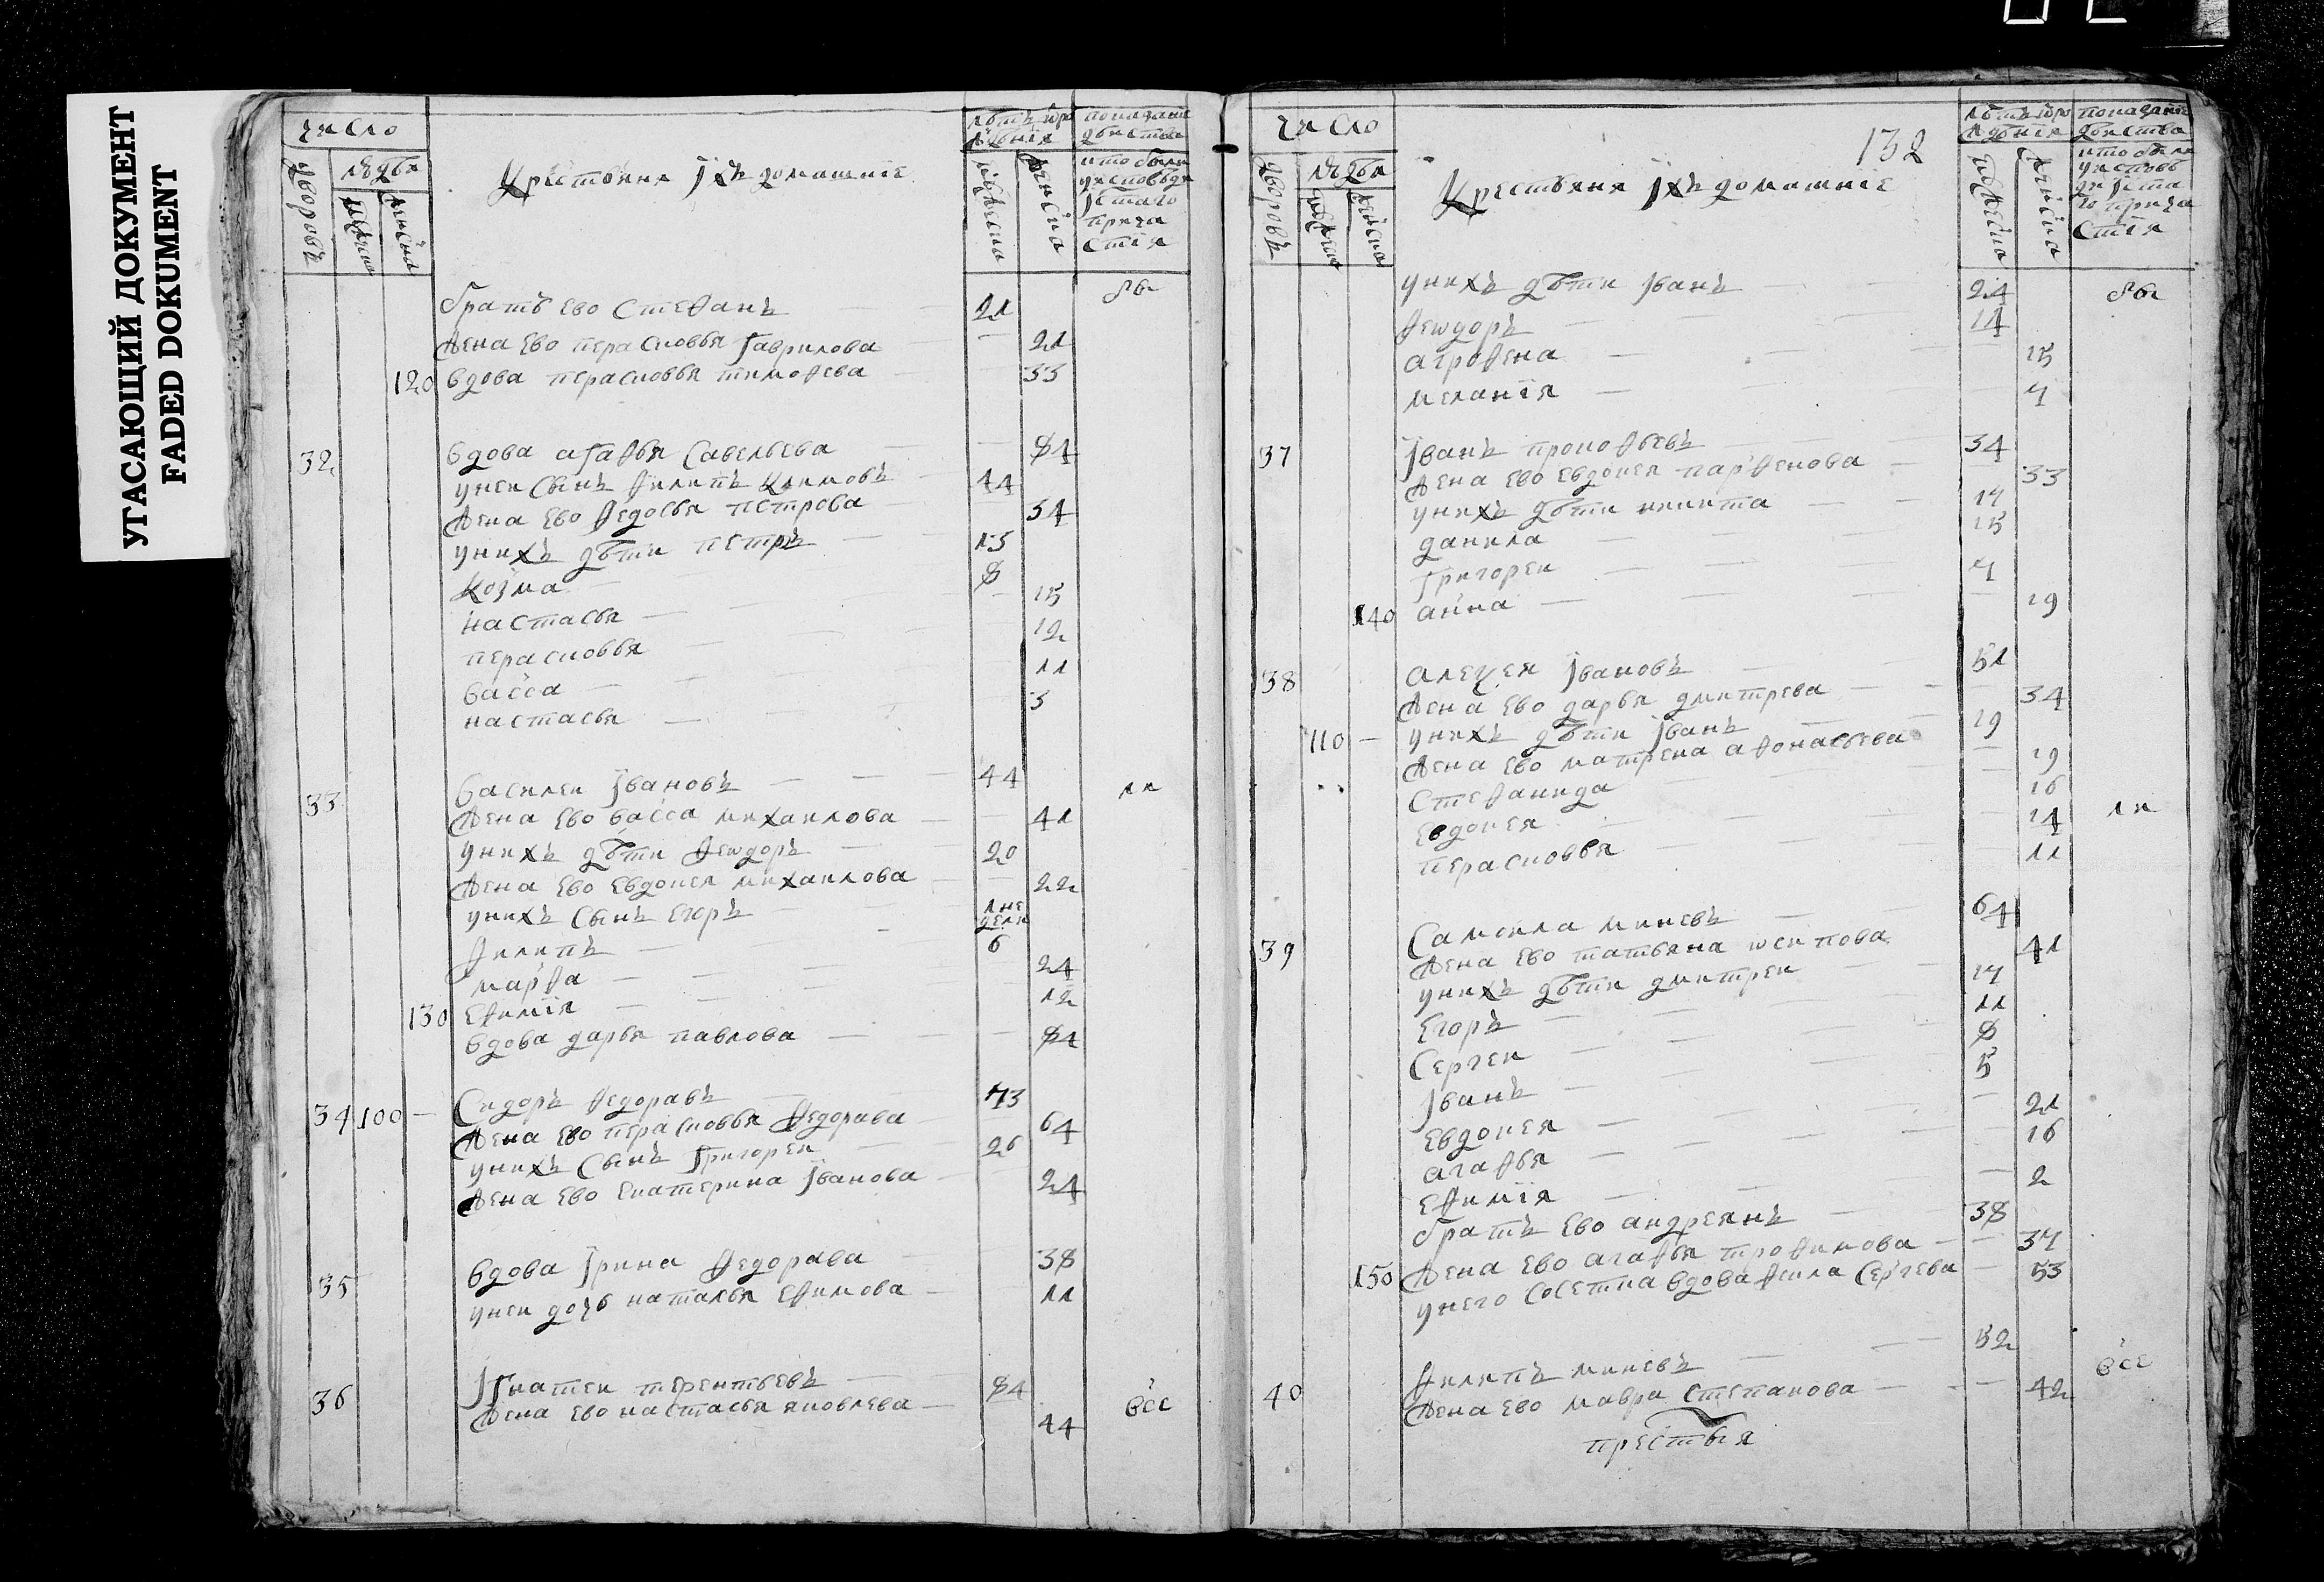 УГАСАЮЩИЙ ДОКУМЕНТ
FADED DOKUMENT
число
дворовъ
людей
мужеска
женска
Крестьяня ихъ домашнїе
лѣтъ ѿ рождения
мужеска
женска
показание действа
кто были у исповѣди и святаго причастїя
братъ ево Стефанъ 21 бы
жена ево Перасковья Гаврилова 21
120 вдова Перасковья Тимофева 33
32 вдова агафья Савельева 81
у неи Сынъ филипъ Климовъ 44
жена ево федосья Петрова 34
у нихъ дѣти Петръ 13
Козма 8
настасья 15
Перасковья 12
васса 11
настасья 3
33 василеи Ивановъ 44 ли
жена ево васса михаилова 41
у нихъ дѣти феѡдоръ 20
жена ево Евдокея михаилова 22
у нихъ Сынъ Егоръ 1 недели
филипъ 6
марфа 24
130 Ефимїя 12
вдова дарья павлова 84
34 100 Сидоръ федоравъ 73
жена ево Перасковья федорава 64
у нихъ Сынъ Григореи 26
жена ево Екатерина Иванова 24
35 вдова Ірина федорава 38
у неи дочь наталья Ефимова 11
36 Ігнатеи терентьевъ 84 все
жена ево настасья яковлева 44
132
число
дворовъ
людей
мужеска
женска
Крестьяня ихъ домашнїе
лѣтъ ѿ рождения
мужеска
женска
показанїе действа
кто были у исповѣди и святаго причастїя
у нихъ дѣти Іванъ 24 бы
феѡдоръ 14
агрофена 15
меланїя 7
37 Іванъ прокофьевъ 34
жена ево Евдокея парфенова 33
у нихъ дѣти никита 17
данила 15
Григореи 7
140 анна 19
38 алеѯея Ивановъ 51
жена ево дарья дмитрева 34
110 у нихъ дѣти Іванъ 19
жена ево матрена афонасьева 19
Стефанида 16
Евдокея 14 ли
Перасковья 11
39 Самоила миневъ 64
жена ево татьяна ѡсипова 41
у нихъ дѣти дмитреи 17
Егоръ 11
Сергеи 8
Іванъ 5
Евдокея 21
агафья 16
Ефимїя 2
братъ ево андреянъ 38
150 жена ево агафья трофимова 37
у него Сосетка вдова фекла Сергева 53
40 филипъ миневъ 52 все
жена ево мавра Степанова 42